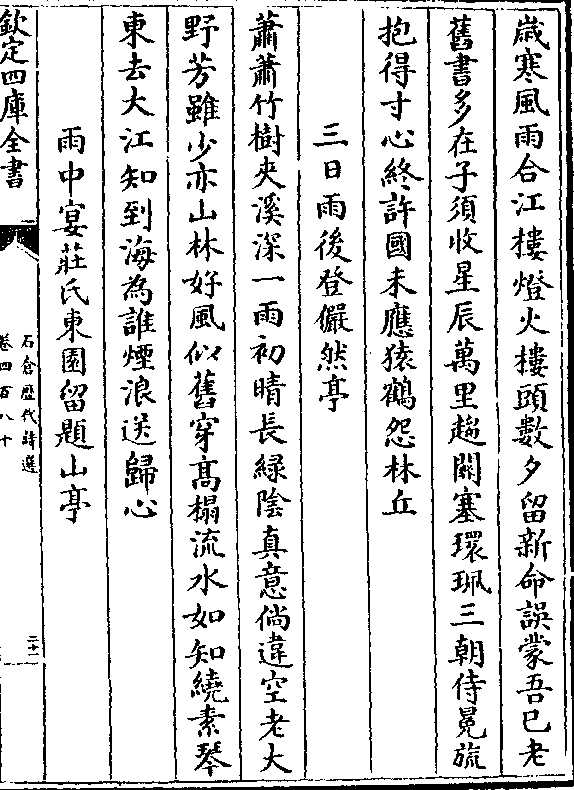 歲寒風雨合江樓燈火樓頭數夕留新命誤蒙吾已老
舊書多在子須收星辰萬里趍關塞環珮三朝侍冕旒
抱得寸心終許國未應猿鶴怨林丘
三日雨後登儼然亭
蕭蕭竹樹夾溪深一雨初晴長緑陰真意倘違空老大
野芳雖少亦山林好風似舊穿髙榻流水如知繞素琴
東去大江知到海為誰煙浪送歸心
雨中宴莊氏東園留題山亭
欽定四庫全書
石倉歷代詩選
卷四百八十
二十一